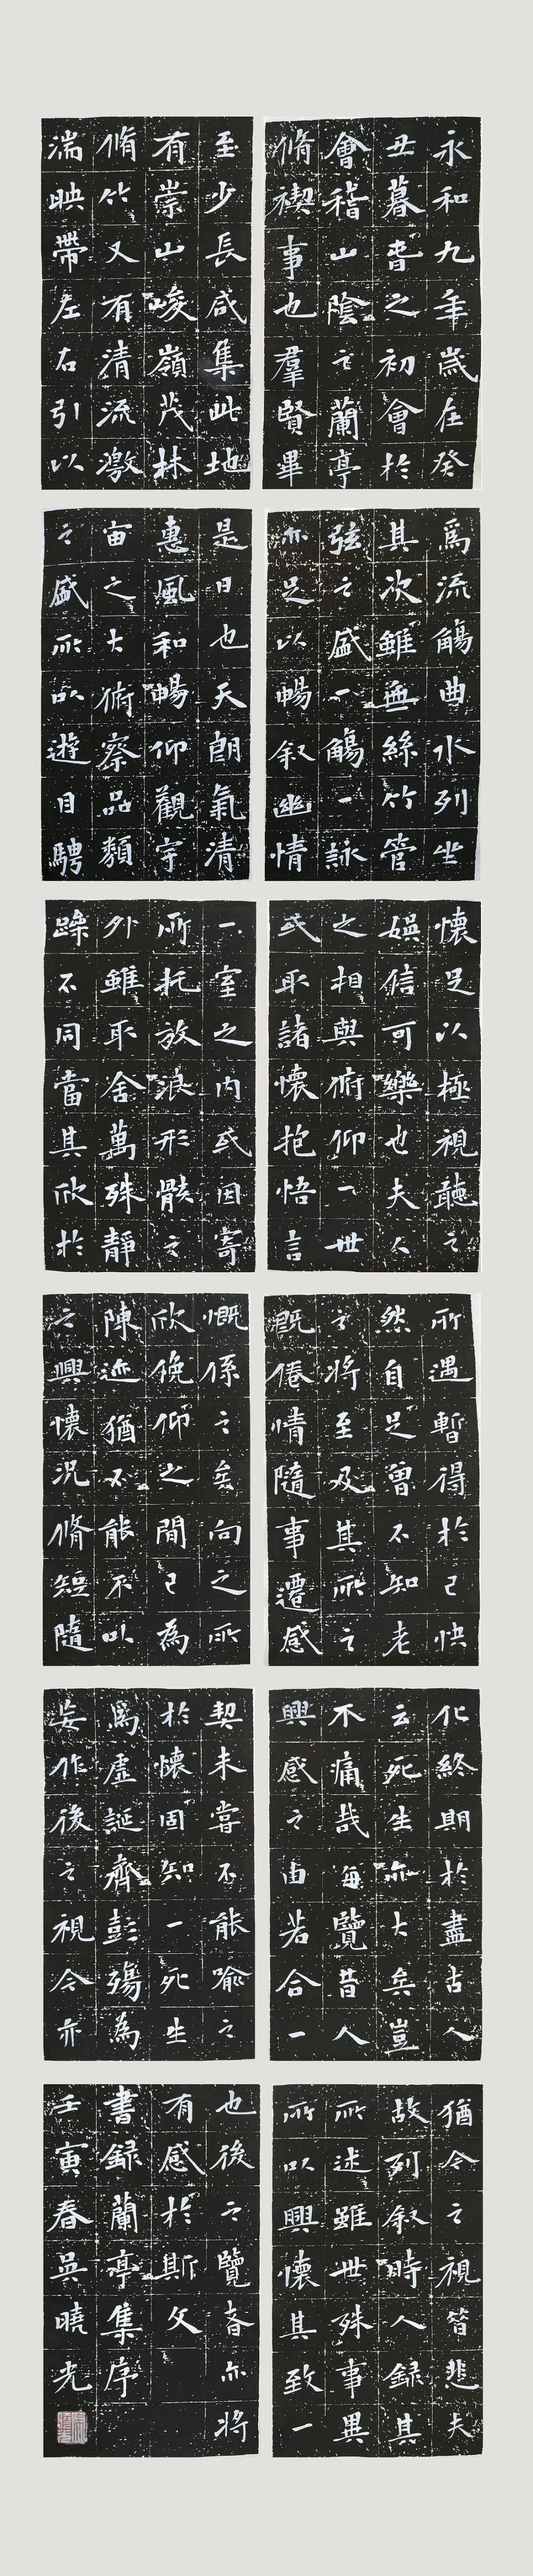 永和九年歲在癸
丑暮春之初會於
會稽山陰之蘭亭
脩禊事也羣賢畢
至少長咸集此地
有崇山峻嶺茂林
脩竹又有清流激
湍映帶左右引以
爲流觴曲水列坐
其次雖無絲竹管
弦之盛一觴一詠
亦足以暢叙幽情
是日也天朗氣清
惠風和暢仰觀宇
宙之大俯察品類
之盛所以遊目騁
懷足以極視聽之
娛信可樂也夫人
之相與俯仰一世
或取諸懷抱悟言
一室之內或因寄
所托放浪形骸之
外雖取舍萬殊靜
躁不同當其欣於
所遇暫得於己快
然自足曾不知老
之將至及其所之
既倦情隨事遷感
慨係之矣向之所
欣俛仰之間已為
陳迹猶不能不以
之興懷況脩短隨
化終期於盡古人
云死生亦大矣豈
不痛哉每覽昔人
興感之由若合一
契未嘗不能喻之
於懷固知一死生
爲虛誕齊彭殤為
妄作後之視今亦
猶今之視昔悲夫
故列叙時人録其
所述雖世殊事異
所以興懷其致一
也後之覽者亦將
有感於斯文
書録蘭亭集序
壬寅春吳曉光